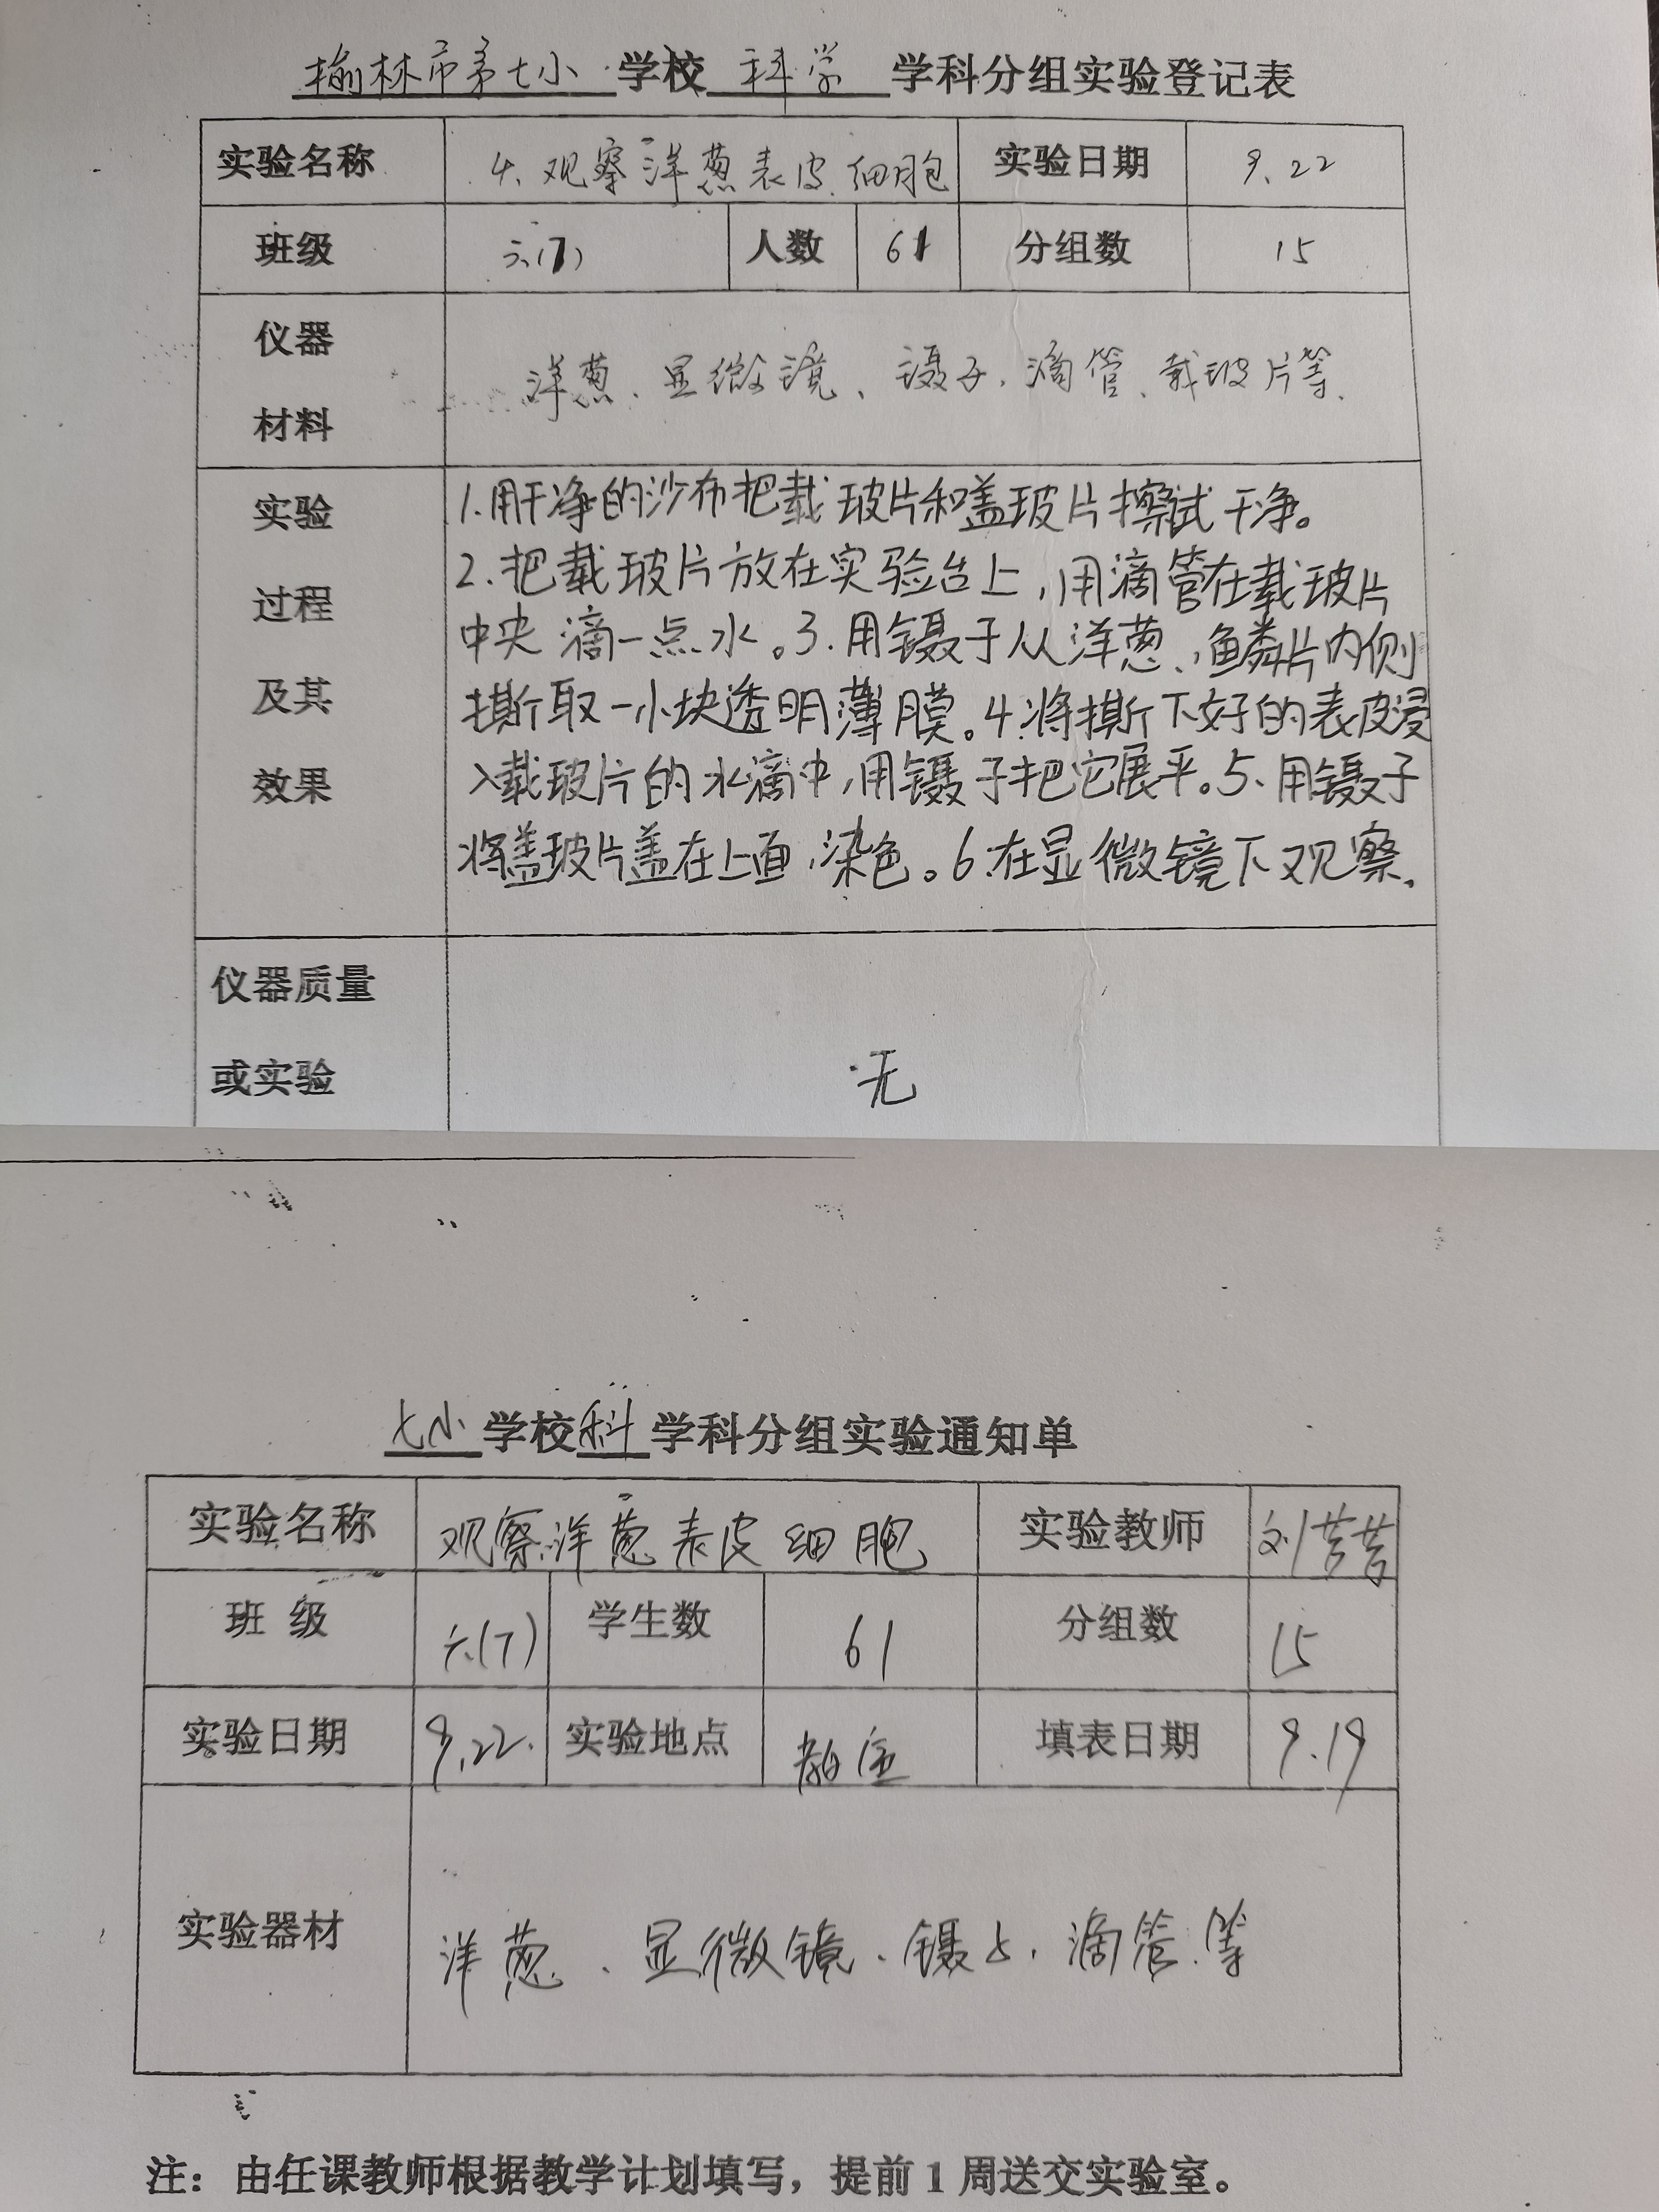 榆林市第七小学校 科学 学科分组实验登记表
实验名称 4、观察洋葱表皮细胞 实验日期 9.22
班级 六(7) 人数 61 分组数 15
仪器
材料
洋葱、显微镜、镊子、滴管、载玻片等.
实验
过程
及其
效果
1.用干净的沙布把载玻片和盖玻片擦试干净。
2.把载玻片放在实验台上,用滴管在载玻片
中央滴一点水。3.用镊子从洋葱、鳞片内侧
撕取一小块透明薄膜。4.将撕下好的表皮浸
入载玻片的水滴中,用镊子把它展平。5、用镊子
将盖玻片盖在上面,染色。6.在显微镜下观察.
仪器质量
或实验
无
七小学校科学科分组实验通知单
实验名称 观察洋葱表皮细胞 实验教师 刘苦苦
班 级 六(7) 学生数 61 分组数 15
实验日期 9.22. 实验地点 教室 填表日期 9.19
实验器材 洋葱、显微镜、镊子、滴管.等
注：由任课教师根据教学计划填写，提前1周送交实验室。